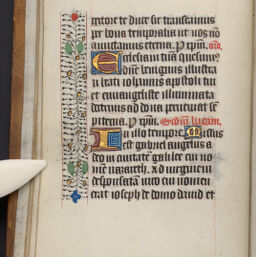 rectore te duce sic transeamus
per bona temporalia ut nos nõ
amittamus eterna. P xp̃m. orõ.
Ecclesiam tuã quesum9
dñe benignus illustra
ut beati iohannis apostoli tui
et euangeliste illuminata
doctrinis ad dona perueniat sẽ
piterna. P xp̃m. Scd̃m lucam.
In illo tempore. Missus
est gabriel angelus a
deo in ciuitatẽ galilee cui no
mẽ nazareth. Ad uirginem
desponsatã uiro cui nomen
erat ioseph de domo dauid et